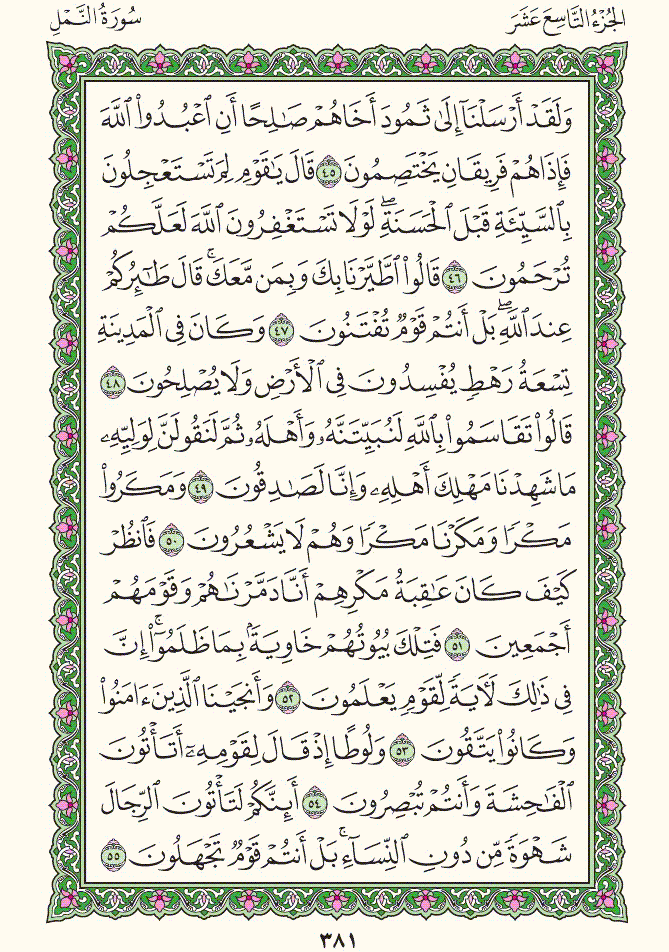 الجُزْءُ التَّاسِعَ عَشَرَ
سُورَةُ النَّمْلِ
وَلَقَدْ أَرْسَلْنَآ إِلَىٰ ثَمُودَ أَخَاهُمْ صَـٰلِحًا أَنِ ٱعْبُدُوا۟ ٱللَّهَ
فَإِذَا هُمْ فَرِيقَانِ يَخْتَصِمُونَ ٤٥ قَالَ يَـٰقَوْمِ لِمَ تَسْتَعْجِلُونَ
بِٱلسَّيِّئَةِ قَبْلَ ٱلْحَسَنَةِ ۖ لَوْلَا تَسْتَغْفِرُونَ ٱللَّهَ لَعَلَّكُمْ
تُرْحَمُونَ ٤٦ قَالُوا۟ ٱطَّيَّرْنَا بِكَ وَبِمَن مَّعَكَ ۚ قَالَ طَـٰٓئِرُكُمْ
عِندَ ٱللَّهِ ۖ بَلْ أَنتُمْ قَوْمٌ تُفْتَنُونَ ٤٧ وَكَانَ فِى ٱلْمَدِينَةِ
تِسْعَةُ رَهْطٍ يُفْسِدُونَ فِى ٱلْأَرْضِ وَلَا يُصْلِحُونَ ٤٨
قَالُوا۟ تَقَاسَمُوا۟ بِٱللَّهِ لَنُبَيِّتَنَّهُۥ وَأَهْلَهُۥ ثُمَّ لَنَقُولَنَّ لِوَلِيِّهِۦ
مَا شَهِدْنَا مَهْلِكَ أَهْلِهِۦ وَإِنَّا لَصَـٰدِقُونَ ٤٩ وَمَكَرُوا۟
مَكْرًا وَمَكَرْنَا مَكْرًا وَهُمْ لَا يَشْعُرُونَ ٥٠ فَٱنظُرْ
كَيْفَ كَانَ عَـٰقِبَةُ مَكْرِهِمْ أَنَّا دَمَّرْنَـٰهُمْ وَقَوْمَهُمْ
أَجْمَعِينَ ٥١ فَتِلْكَ بُيُوتُهُمْ خَاوِيَةًۢ بِمَا ظَلَمُوٓا۟ ۗ إِنَّ
فِى ذَٰلِكَ لَـَٔايَةً لِّقَوْمٍ يَعْلَمُونَ ٥٢ وَأَنجَيْنَا ٱلَّذِينَ ءَامَنُوا۟
وَكَانُوا۟ يَتَّقُونَ ٥٣ وَلُوطًا إِذْ قَالَ لِقَوْمِهِۦٓ أَتَأْتُونَ
ٱلْفَـٰحِشَةَ وَأَنتُمْ تُبْصِرُونَ ٥٤ أَئِنَّكُمْ لَتَأْتُونَ ٱلرِّجَالَ
شَهْوَةً مِّن دُونِ ٱلنِّسَآءِ ۚ بَلْ أَنتُمْ قَوْمٌ تَجْهَلُونَ ٥٥
٣٨١